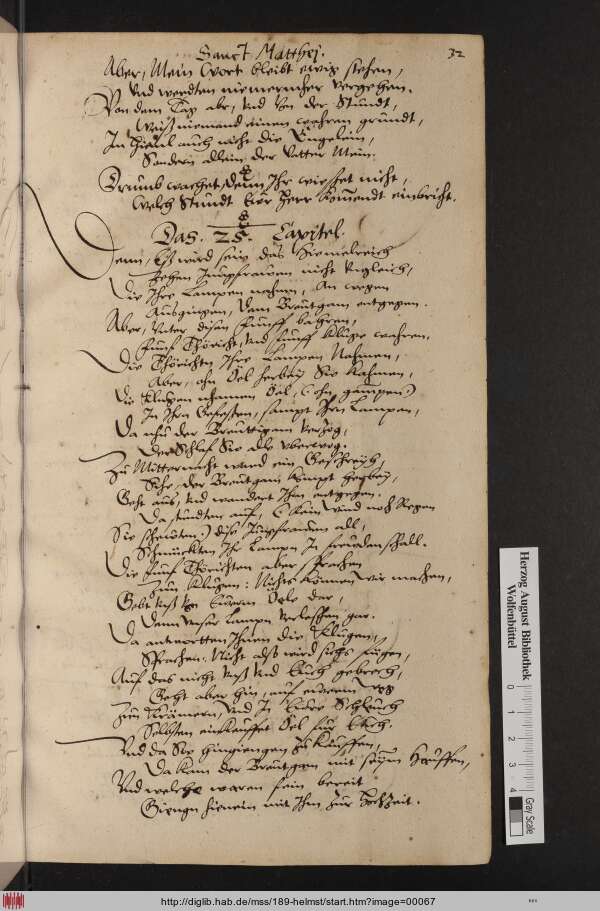 Sanct Matthej.
32
Aber, Mein Wort bleibt ewig stehen,
Vnd werden niemermher vergehen.
Von dem Tag abr, vnd von der Stundt,
Weiß niemand einen wahren grundt,
Im Himl auch nicht die Engelein,
Sondern allein der Vatter Mein.
Drumb wachet, denn Ihr wisset nicht,
Welch Stundt Eur Herr komendt einbricht.
Das. 25. Capitel.
Denn, Es wird sein das Himelreich
Zehen Jungfrauen nicht vngleich,
Die Ihre Lampen nahmen, An wegen
Ausgingen, dem Breutgam entgegen.
Aber, Vnter disen fünff
Fünff Thöricht, vnd fünff kluge wahren,
Die Thörichten Ihre Lampen Nahmen,
Aber, ohn Oel herbey Sie kahmen,
Die klugen nhamen Oel,
In Ihrn Gefessen, sampt Ihrn Lampen,
Da nhu der Breuttigam verzog,
Der Schlaf Sie alle vberwog.
Zu Mitternacht ward ein Geschreyh,
Sihe, der Breutgam kompt herbey,
Geht aus, vnd wandert Ihm entgegen.
Da stundten auf, (kein wind noch Regen
Sie scheuten:) dise Jungfrauen all,
Schmückten Ihr Lampen In freudenschall.
Die fünf Thörichten aber sprachen
Zun klugen: Nichts können wir machen,
Gebt vnß von Eurem Oele dar,
Dann vnser Lampn verleschen gar.
Da antwortten Ihnen die klugen,
Sprachen: Nicht also wird sichs fügen,
Auf das nicht vnß vnd Euch gebrech,
Geht aber hin, auf
Zun Krämern, vnd In Eure Schleuch
Selbsten einkauffet Oel für Euch.
Vnd da Sie hingiengen zu kauffen,
Da kam der Breutgam mit seym Hauffen,
Vnd welche waren fein bereit
Giengn hinein mit Ihm zur Hochzeit.
Herzog August Bibliothek
Wolfenbüttel
0 1 2 3 4
Gray Scale
http://diglib.hab.de/mss/189-helmst/start.htm?image=00067